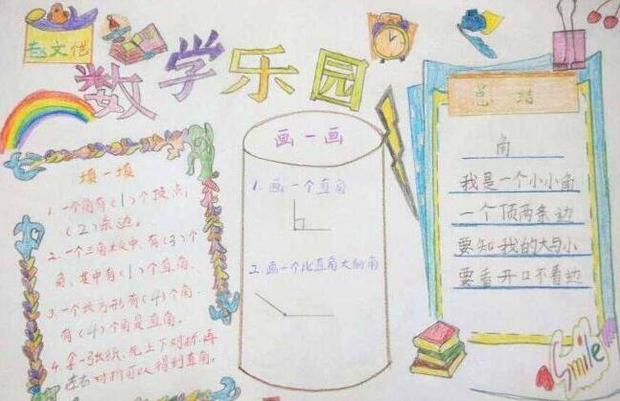 赵文恺
数学乐园
填一填
1.一个角有(1)个顶点,
(2)条边。
2.一个三角板中,有(3)个
角,其中有(1)个直角。
3.一个长方形有(4)个角
有(4)个角是直角。
4.拿一张纸,先上下对折,再
左右对折可以得到直角。
画一画
1.画一个直角
2.画一个比直角大的角
总结
角
我是一个小小角
一个顶两条边
要知我的大与小
要看开口不看边
Smile